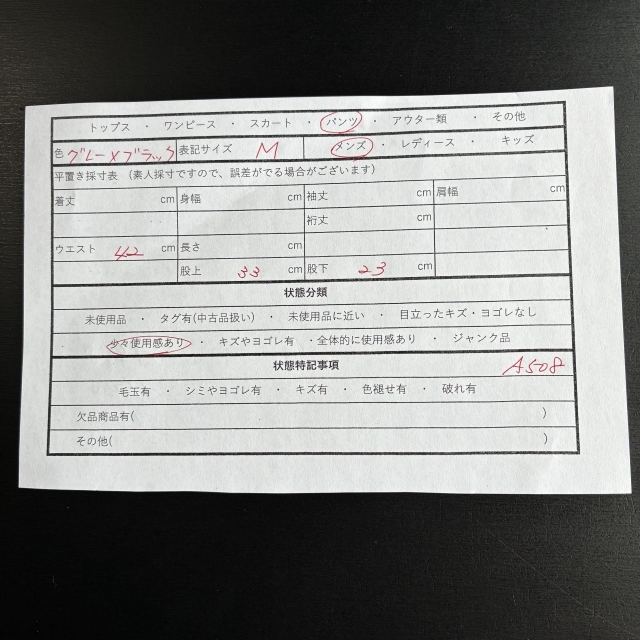 トップス ・ ワンピース ・ スカート ・ パンツ ・ アウター類 ・ その他
色 グレー×ブラック 表記サイズ M メンズ ・ レディース ・ キッズ
平置き採寸表 (素人採寸ですので、誤差がでる場合がございます)
着丈 cm 身幅 cm 袖丈 cm 肩幅 cm
裄丈 cm
ウエスト 42 cm 長さ cm
股上 33 cm 股下 23 cm
状態分類
未使用品 ・ タグ有(中古品扱い) ・ 未使用品に近い ・ 目立ったキズ・ヨゴレなし
少々使用感あり ・ キズやヨゴレ有 ・全体的に使用感あり ・ ジャンク品
状態特記事項 A508
毛玉有 ・ シミやヨゴレ有 ・ キズ有 ・ 色褪せ有 ・ 破れ有
欠品商品有( )
その他( )